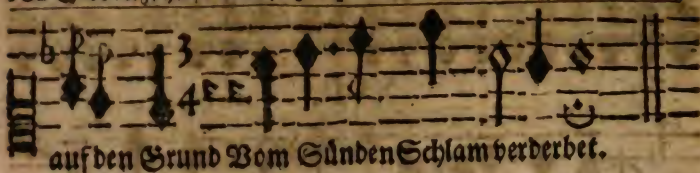 3
4
auf den Grund Vom Sünden Schlam verderbet.